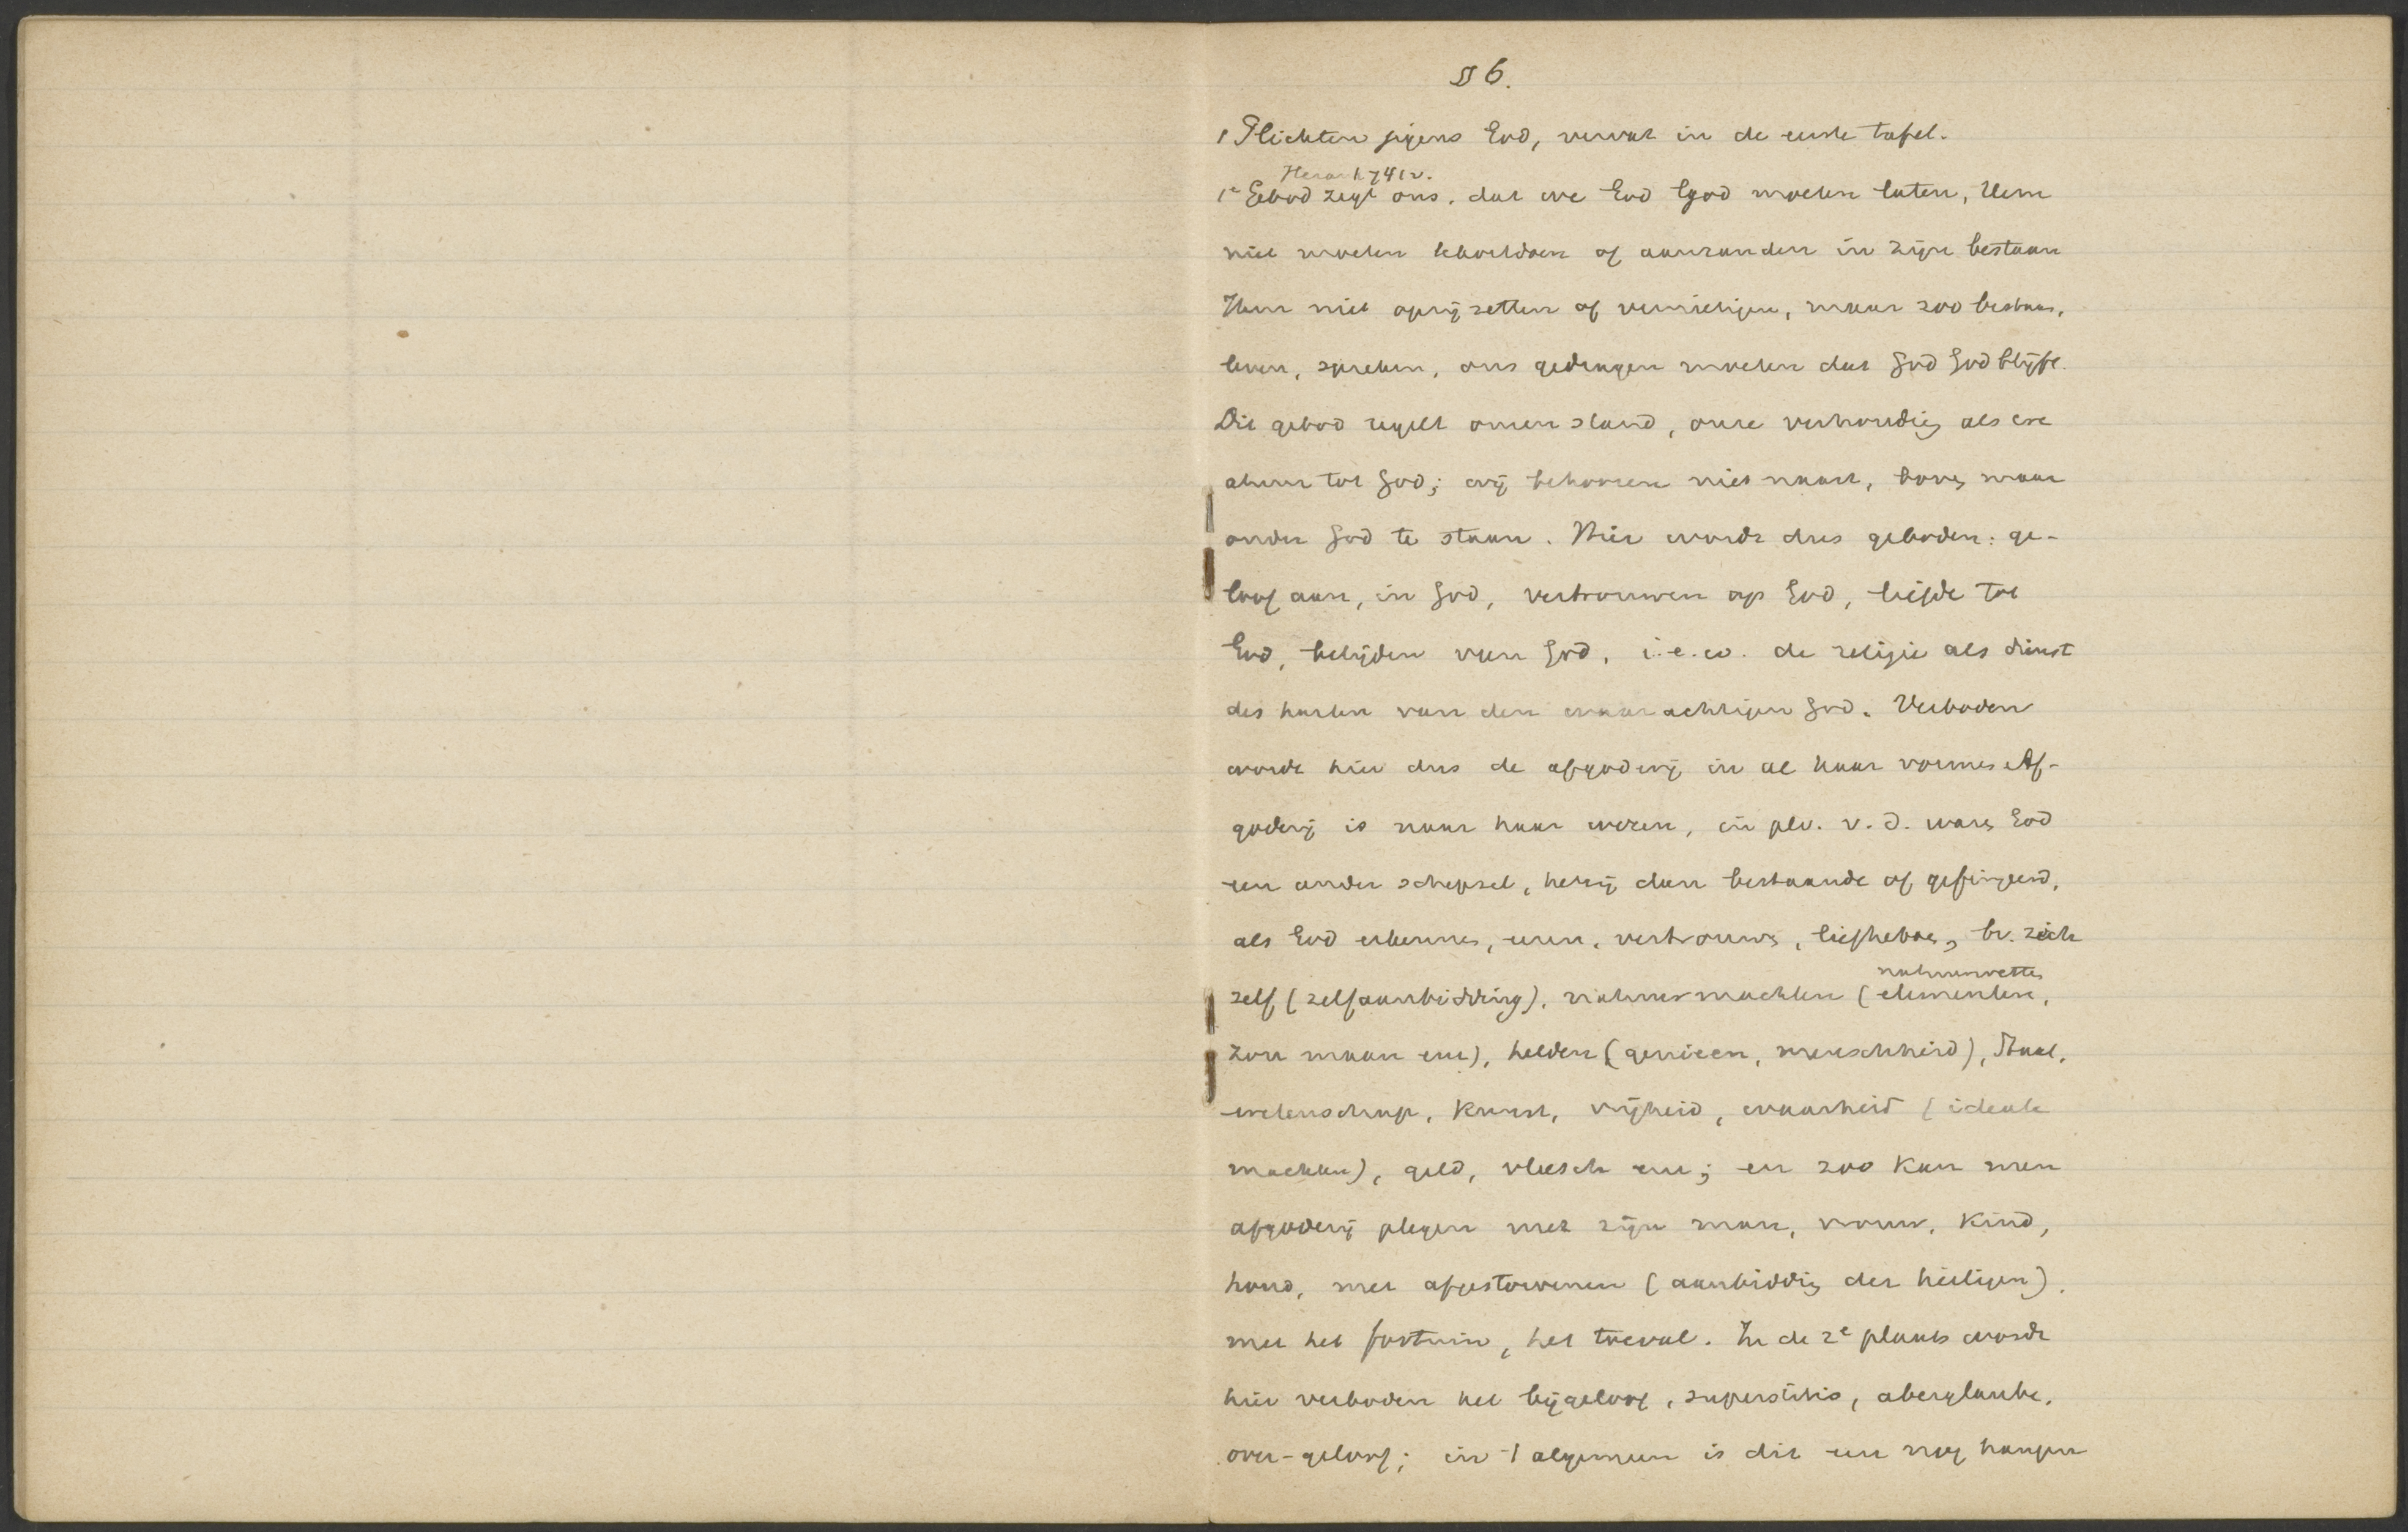 § 6.
1 Plichten jegens God, vervat in de eerste tafel.
1e Gebod zegt ons, dat we God God moeten laten, Hem
niet moeten te kort doen of aanranden in zijn bestaan
Hem niet op zij zetten of vernietigen, maar zoo bestaan,
leven, spreken, ons gedragen moeten dat God God blijft.
Dit gebod regelt onzen stand, onze verhouding als we
ahw tot God; wij behooren niet naast, boven maar
onder God te staan. Hier wordt dus geboden: ge-
loof aan, in God, vertrouwen op God, liefde tot
God, belijden van God, i.e.w. de religie als dienst
des harten van den waarachtigen God. Verboden
wordt hier dus de afgoderij in al haar vormen. Af-
goderij is naar haar wezen, in plv. v. d. waren God
een ander schepsel, hetzij dan bestaande of gefingeerd,
als God erkennen, eeren, vertrouwen, liefhebben, bv. zich
natuurwetten
zelf (zelfaanbidding), natuurmachten (elementen,
zon maan enz), helden (genieen, menschheid), Staat,
wetenschap, Kunst, vrijheid, waarheid (ideale
machten), geld, vleesch enz; en zoo kan men
afgoderij plegen met zijn man, vrouw, kind,
hond, met afgestorvenen (aanbidding der heiligen),
met het fortuin, het toeval. In de 2e plaats wordt
hier verboden het bijgeloof, superstitio, aberglaube,
over-geloof; in 't algemeen is dit een nog hangen